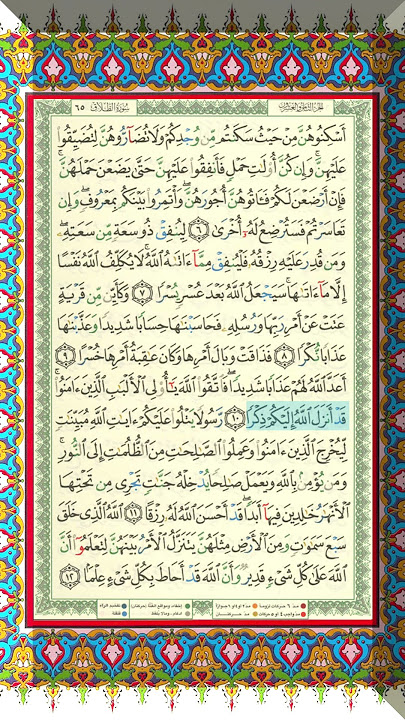 سُورَةُ الطَّلَاقِ ٦٥
أَسْكِنُوهُنَّ مِنْ حَيْثُ سَكَنتُم مِّن وُجْدِكُمْ وَلَا تُضَآرُّوهُنَّ لِتُضَيِّقُوا۟
عَلَيْهِنَّ ۚ وَإِن كُنَّ أُو۟لَٰتِ حَمْلٍ فَأَنفِقُوا۟ عَلَيْهِنَّ حَتَّىٰ يَضَعْنَ حَمْلَهُنَّ ۚ
فَإِنْ أَرْضَعْنَ لَكُمْ فَـَٔاتُوهُنَّ أُجُورَهُنَّ ۖ وَأْتَمِرُوا۟ بَيْنَكُم بِمَعْرُوفٍ ۖ وَإِن
تَعَاسَرْتُمْ فَسَتُرْضِعُ لَهُۥٓ أُخْرَىٰ ٦ لِيُنفِقْ ذُو سَعَةٍ مِّن سَعَتِهِۦ ۖ
وَمَن قُدِرَ عَلَيْهِ رِزْقُهُۥ فَلْيُنفِقْ مِمَّآ ءَاتَىٰهُ ٱللَّهُ ۚ لَا يُكَلِّفُ ٱللَّهُ نَفْسًا
إِلَّا مَآ ءَاتَىٰهَا ۚ سَيَجْعَلُ ٱللَّهُ بَعْدَ عُسْرٍ يُسْرًا ٧ وَكَأَيِّن مِّن قَرْيَةٍ
عَتَتْ عَنْ أَمْرِ رَبِّهَا وَرُسُلِهِۦ فَحَاسَبْنَٰهَا حِسَابًا شَدِيدًا وَعَذَّبْنَٰهَا
عَذَابًا نُّكْرًا ٨ فَذَاقَتْ وَبَالَ أَمْرِهَا وَكَانَ عَٰقِبَةُ أَمْرِهَا خُسْرًا ٩
أَعَدَّ ٱللَّهُ لَهُمْ عَذَابًا شَدِيدًا ۖ فَٱتَّقُوا۟ ٱللَّهَ يَٰٓأُو۟لِى ٱلْأَلْبَٰبِ ٱلَّذِينَ ءَامَنُوا۟ ۚ
قَدْ أَنزَلَ ٱللَّهُ إِلَيْكُمْ ذِكْرًا ١٠ رَّسُولًا يَتْلُوا۟ عَلَيْكُمْ ءَايَٰتِ ٱللَّهِ مُبَيِّنَٰتٍ
لِّيُخْرِجَ ٱلَّذِينَ ءَامَنُوا۟ وَعَمِلُوا۟ ٱلصَّٰلِحَٰتِ مِنَ ٱلظُّلُمَٰتِ إِلَى ٱلنُّورِ ۚ
وَمَن يُؤْمِنۢ بِٱللَّهِ وَيَعْمَلْ صَٰلِحًا يُدْخِلْهُ جَنَّٰتٍ تَجْرِى مِن تَحْتِهَا
ٱلْأَنْهَٰرُ خَٰلِدِينَ فِيهَآ أَبَدًا ۖ قَدْ أَحْسَنَ ٱللَّهُ لَهُۥ رِزْقًا ١١ ٱللَّهُ ٱلَّذِى خَلَقَ
سَبْعَ سَمَٰوَٰتٍ وَمِنَ ٱلْأَرْضِ مِثْلَهُنَّ يَتَنَزَّلُ ٱلْأَمْرُ بَيْنَهُنَّ لِتَعْلَمُوٓا۟ أَنَّ
ٱللَّهَ عَلَىٰ كُلِّ شَىْءٍ قَدِيرٌ وَأَنَّ ٱللَّهَ قَدْ أَحَاطَ بِكُلِّ شَىْءٍ عِلْمًۢا ١٢